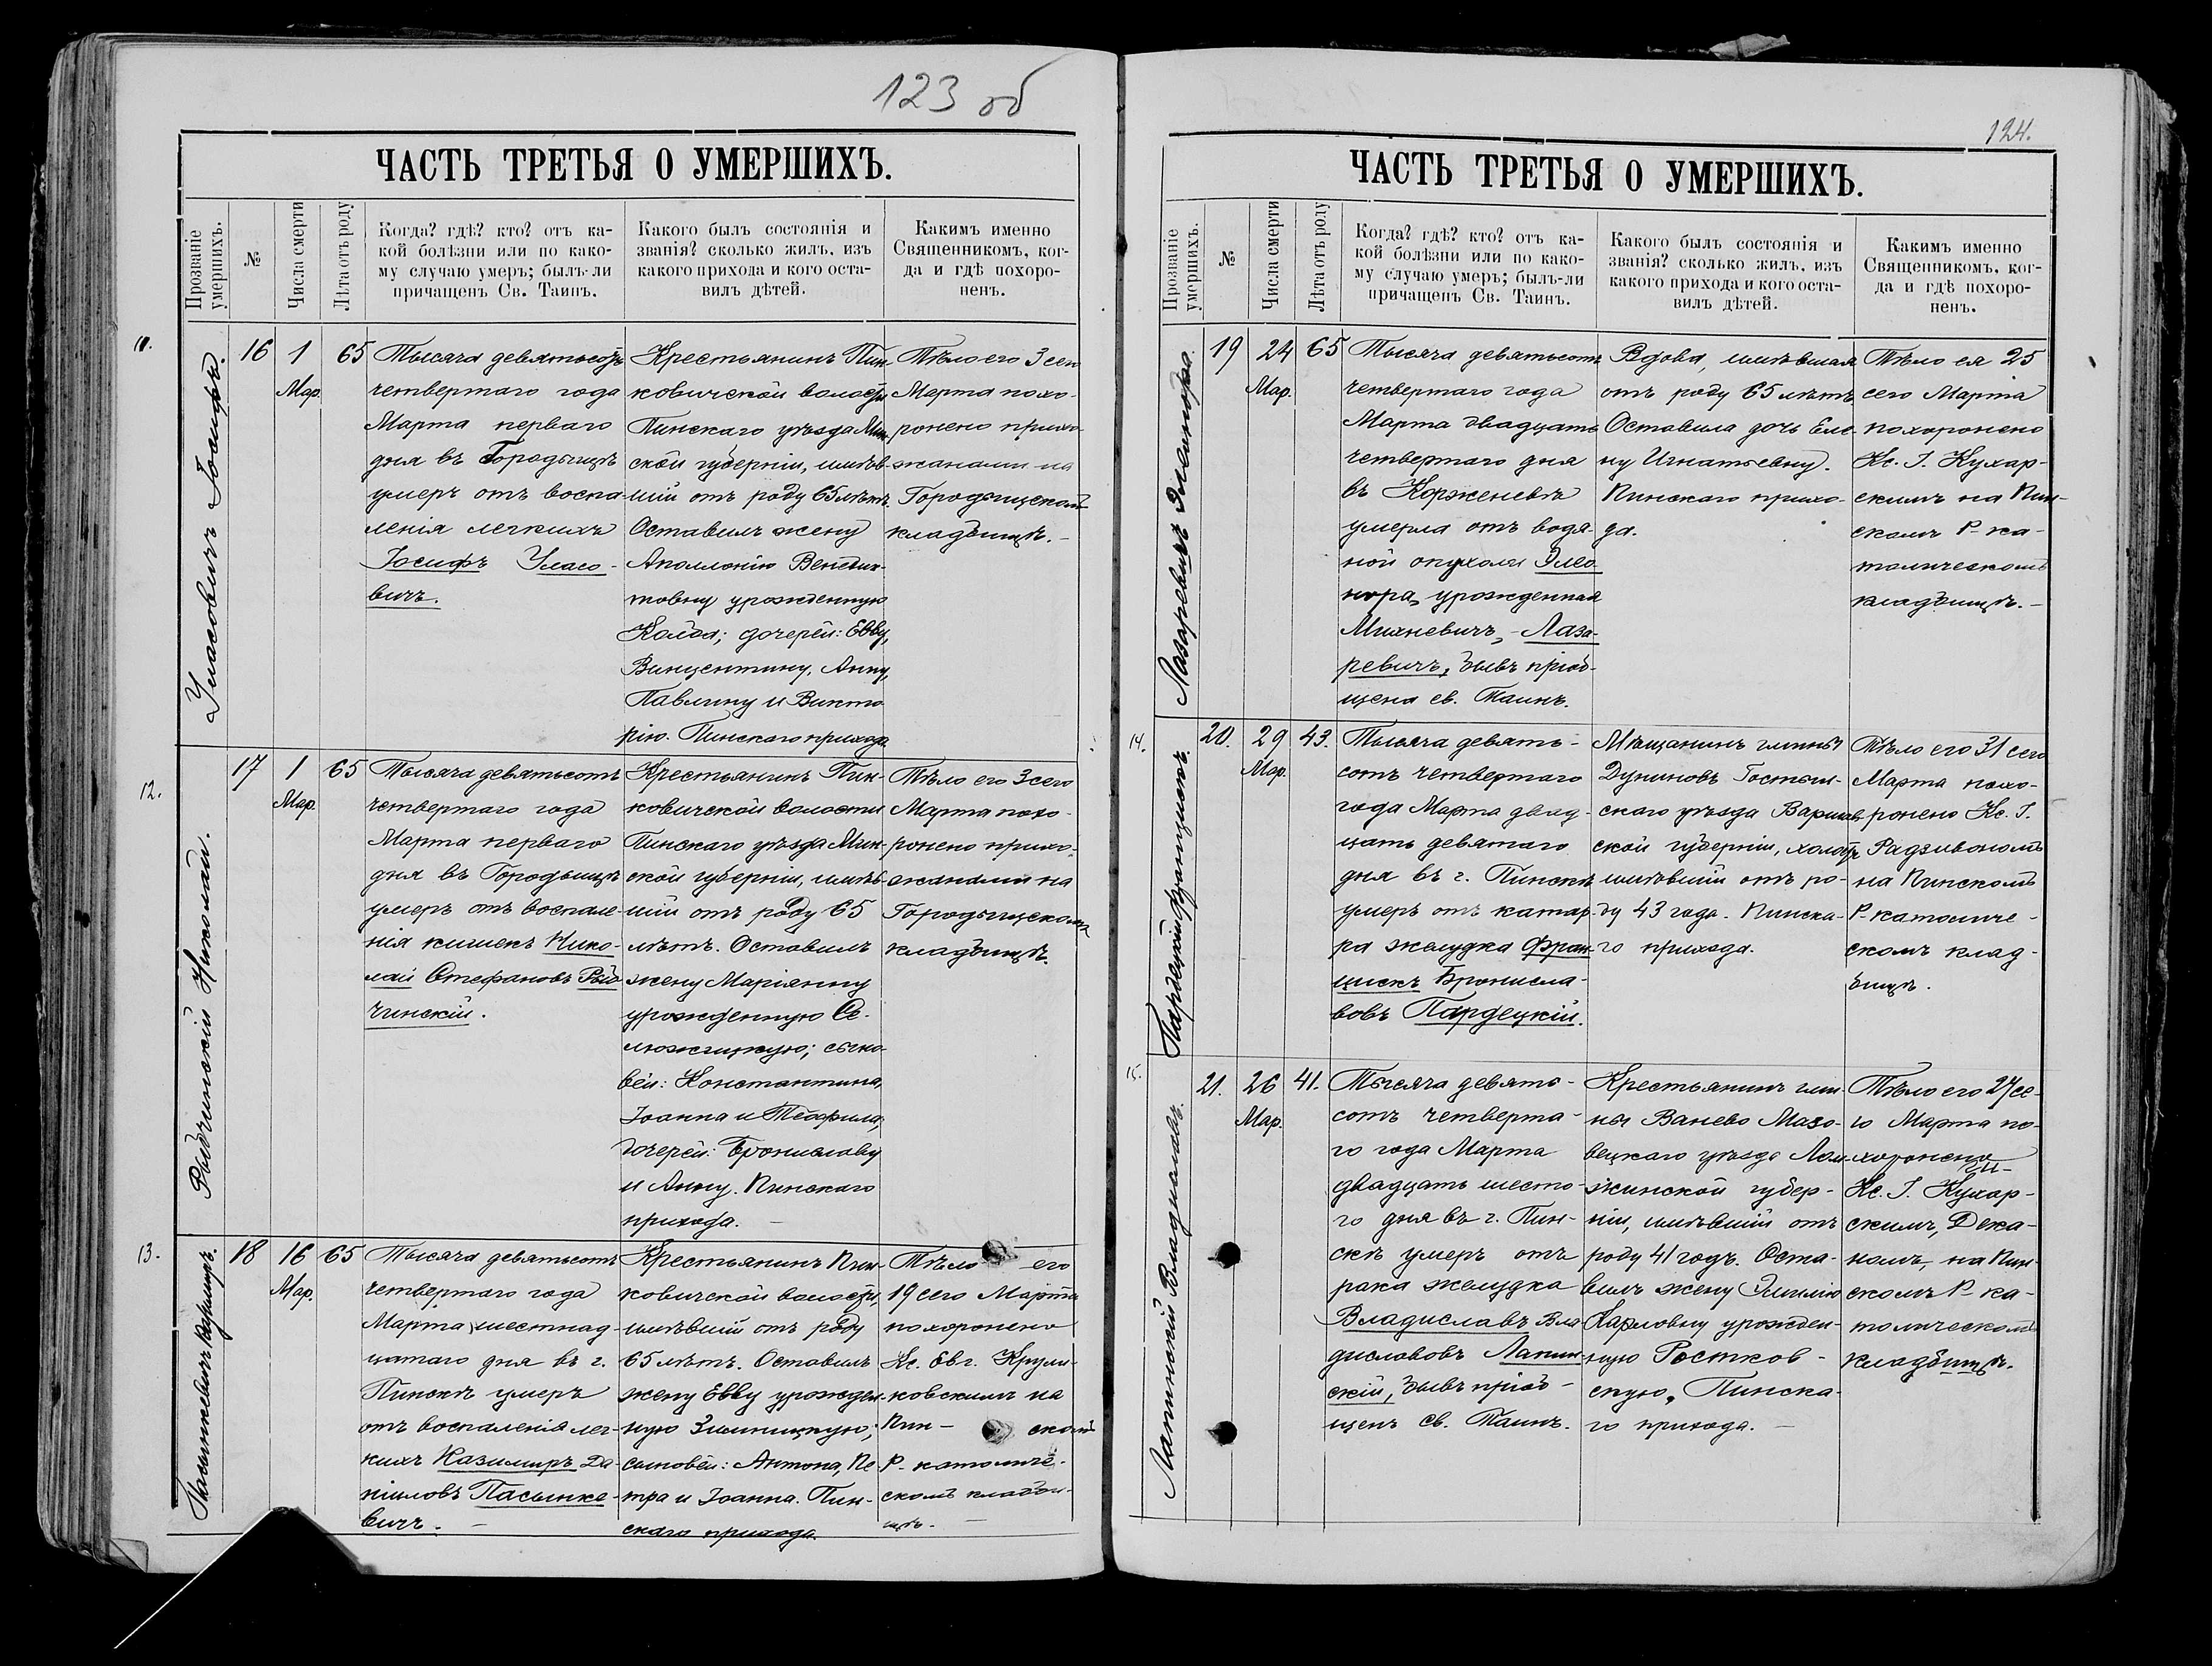 123 об
ЧАСТЬ ТРЕТЬЯ О УМЕРШИХЪ.
Прозваніе умершихъ.
№
Числа смерти
Лѣта отъ роду
Когда? гдѣ? кто? отъ ка-
кой болѣзни или по како-
му случаю умеръ; былъ-ли
причащенъ Св. Таинъ.
Какого былъ состоянія и
званія? сколько жилъ, изъ
какого прихода и кого оста-
вилъ дѣтей.
Какимъ именно
Священникомъ, ког-
да и гдѣ похоро-
ненъ.
11.
Уласовичъ Іосифъ.
16
1
Мар.
65
Тысяча девятьсотъ
четвертаго года
Марта перваго
дня въ Городыщѣ
умеръ отъ воспа-
ленія легкихъ
Іосифъ Уласо-
вичъ.
Крестьянинъ Пин-
ковичской волости
Пинскаго уѣзда Мин-
ской губерніи, имѣв-
шій отъ роду 65 лѣтъ.
Оставилъ жену
Аполлонію Венедик-
товну урожденную
Колба; дочерей: Евву,
Винцентину, Анну,
Павлину и Викто-
рію. Пинскаго прихода.
Тѣло его 3 сего
Марта похо-
ронено прихо-
жанами на
Городыщскомъ
кладбищѣ.
12.
Рыдчинскій Николай.
17
1
Мар.
65
Тысяча девятьсотъ
четвертаго года
Марта перваго
дня въ Городыщѣ
умеръ отъ воспале-
нія кишекъ Нико-
лай Стефановъ Рыд-
чинскій.
Крестьянинъ Пин-
ковичской волости
Пинскаго уѣзда Мин-
ской губерніи, имѣв-
шій отъ роду 65
лѣтъ. Оставилъ
жену Маріянну
урожденную Се-
люжицкую; сыно-
вей: Константина,
Іоанна и Теофила,
дочерей: Брониславу
и Анну. Пинскаго
прихода.
Тѣло его 3 сего
Марта похо-
ронено прихо-
жанами на
Городыщскомъ
кладбищѣ.
13.
Пасынкевичъ Казиміръ.
18
16
Мар.
65
Тысяча девятьсотъ
четвертаго года
Марта шестнад-
цатаго дня въ г.
Пинскѣ умеръ
отъ воспаленія лег-
кихъ Казиміръ Да-
ніиловъ Пасынке-
вичъ.
Крестьянинъ Пин-
ковичской волости,
имѣвшій отъ роду
65 лѣтъ. Оставилъ
жену Евву урожден-
ную Зимницкую;
сыновей: Антона, Пе-
тра и Іоанна. Пин-
скаго прихода.
Тѣло его
19 сего Марта
похоронено
Кс. Евг. Крули-
ковскимъ на
Пин- скомъ
Р-католиче-
скомъ кладби-
щѣ.
124.
ЧАСТЬ ТРЕТЬЯ О УМЕРШИХЪ.
Прозваніе умершихъ.
№
Числа смерти
Лѣта отъ роду
Когда? гдѣ? кто? отъ ка-
кой болѣзни или по како-
му случаю умеръ; былъ-ли
причащенъ Св. Таинъ.
Какого былъ состоянія и
званія? сколько жилъ, изъ
какого прихода и кого оста-
вилъ дѣтей.
Какимъ именно
Священникомъ, ког-
да и гдѣ похоро-
ненъ.
Лазаревичъ Элеонора.
19
24
Мар.
65
Тысяча девятьсотъ
четвертаго года
Марта двадцать
четвертаго дня
въ Корженевѣ
умерла отъ водя-
ной опухоли Элео-
нора, урожденная
Михневичъ, - Лаза-
ревичъ, бывъ пріоб-
щена св. Таинъ.
Вдова, имѣвшая
отъ роду 65 лѣтъ.
Оставила дочь Еле-
ну Игнатьевну.
Пинскаго прихо-
да.
Тѣло ея 25
сего Марта
похоронено
Кс. І. Кухар-
скимъ на Пин-
скомъ Р-ка-
толическомъ
кладбищѣ.
14.
Пардецкій Францискъ.
20.
29
Мар.
43.
Тысяча девять-
сотъ четвертаго
года Марта двад-
цать девятаго
дня въ г. Пинскѣ
умеръ отъ катар-
ра желудка Фран-
цискъ Бронисла-
вовъ Пардецкій.
Мѣщанинъ гмины
Дуниновъ Гостын-
скаго уѣзда Варшав-
ской губерніи, холостъ
имѣвшій отъ ро-
ду 43 года. Пинска-
го прихода.
Тѣло его 31 сего
Марта похо-
ронено Кс. І.
Радзивономъ
на Пинскомъ
Р-католиче-
скомъ клад-
бищѣ.
15.
Лапинскій Владиславъ.
21.
26
Мар.
41.
Тысяча девять-
сотъ четверта-
го года Марта
двадцать шесто-
го дня въ г. Пин-
скѣ умеръ отъ
рака желудка
Владиславъ Вла-
диславовъ Лапин-
скій, бывъ пріоб-
щенъ св. Таинъ.
Крестьянинъ гми-
ны Ванево Мазо-
вецкаго уѣзда Лом-
жинской губер-
ніи, имѣвшій отъ
роду 41 годъ. Оста-
вилъ жену Эмилію
Карловну урожден-
ную Ростков-
скую. Пинска-
го прихода.
Тѣло его 27 се-
го Марта по-
хоронено
Кс. І. Кухар-
скимъ, Дека-
номъ, на Пин-
скомъ Р-ка-
толическомъ
кладбищѣ.